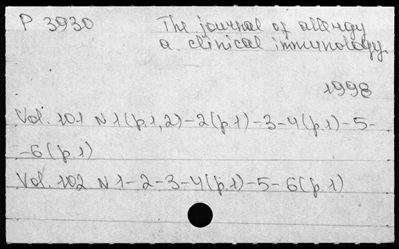 P 3930 The journal of allergy
a. clinical immunology.
1998
Vol. 101 N 1(p.1,2)-2(p.1)-3-4(p.1)-5-
-6(p.1)
Vol. 102 N 1-2-3-4(p.1)-5-6(p.1)